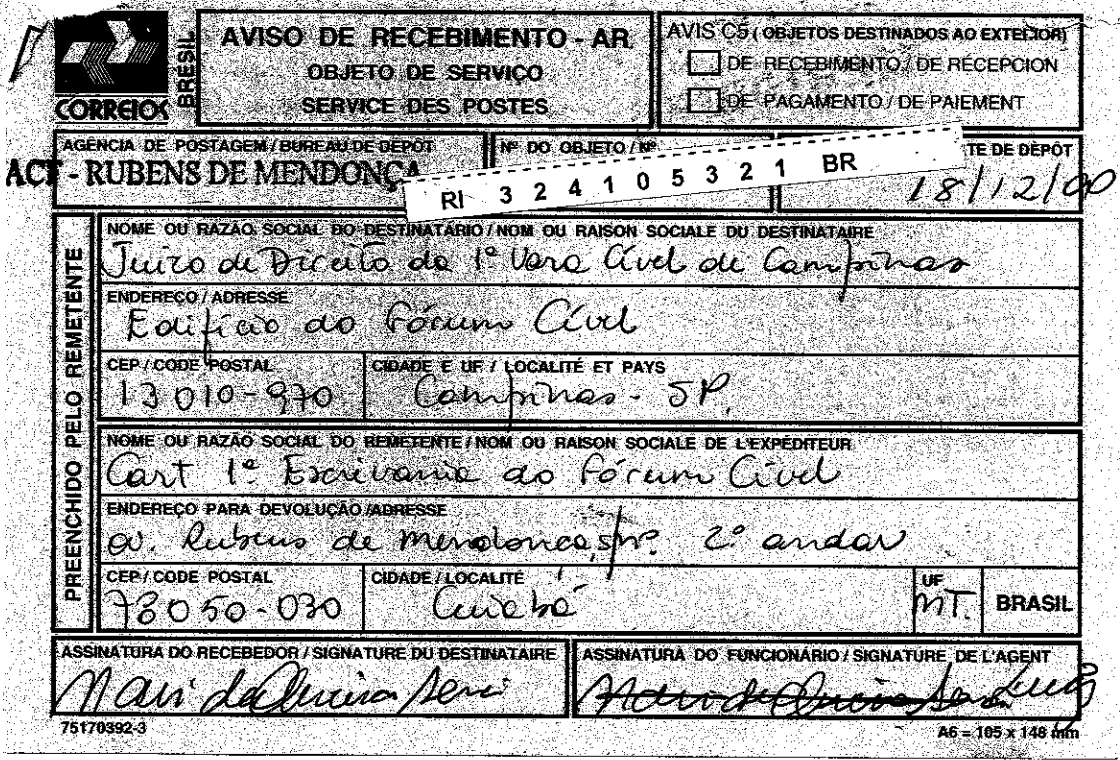 CORREIOS
BRESIL
AVISO DE RECEBIMENTO - AR
OBJETO DE SERVIÇO
SERVICE DES POSTES
AVIS C5 (OBJETOS DESTINADOS AO EXTERIOR)
DE RECEBIMENTO / DE RECEPCION
DE PAGAMENTO / DE PAIEMENT
AGENCIA DE POSTAGEM / BUREAU DE DEPOT
ACF - RUBENS DE MENDONÇA
Nº DO OBJETO / Nº
RI 3 2 4 1 0 5 3 2 1 BR
TE DE DÉPÔT
18/12/00
PREENCHIDO PELO REMETENTE
NOME OU RAZÃO SOCIAL DO DESTINATÁRIO / NOM OU RAISON SOCIALE DU DESTINATAIRE
Juizo de Direito da 1ª Vara Cível de Campinas
ENDEREÇO / ADRESSE
Edifício do Fórum Cível
CEP / CODE POSTAL
13010-970
CIDADE E UF / LOCALITÉ ET PAYS
Campinas - SP.
NOME OU RAZÃO SOCIAL DO REMETENTE / NOM OU RAISON SOCIALE DE L'EXPÉDITEUR
Cart 1ª Escrivania do Fórum Cível
ENDEREÇO PARA DEVOLUÇÃO / ADRESSE
av. Rubens de Mendonça, s/nº. 2º andar
CEP / CODE POSTAL
78050-030
CIDADE / LOCALITÉ
Cuiabá
UF
MT.
BRASIL
ASSINATURA DO RECEBEDOR / SIGNATURE DU DESTINATAIRE
ASSINATURA DO FUNCIONÁRIO / SIGNATURE DE L'AGENT
75170392-3
A6 = 105 x 148 mm